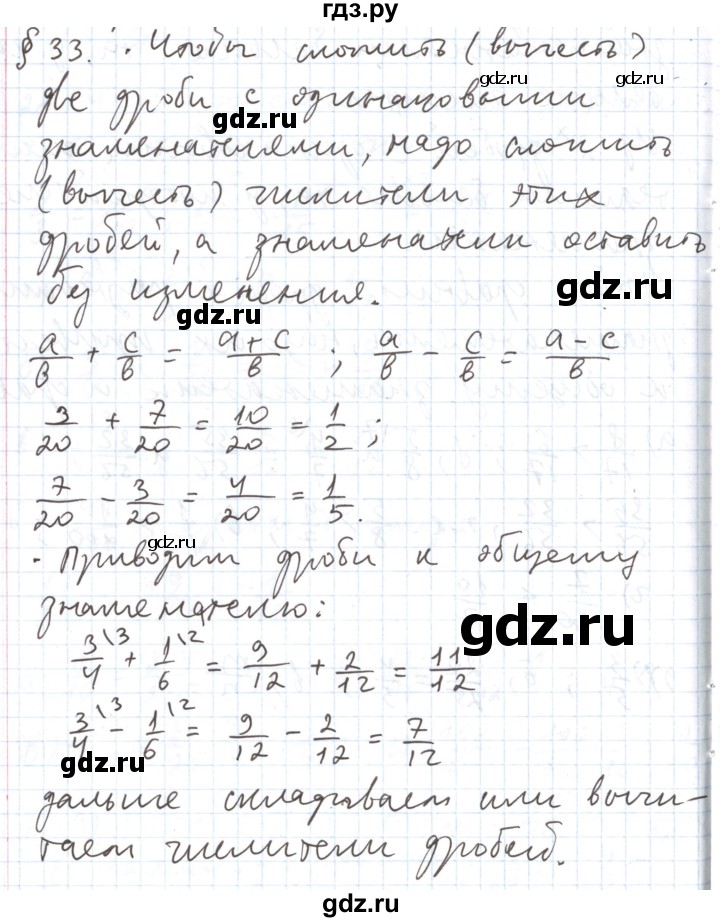 гдз.ру
§ 33. · Чтобы сложить (вычесть)
gdz.ru gdz.ru
две дроби с одинаковыми
gdz.ru
знаменателями, надо сложить
(вычесть) числители этих
gdz.ru
дробей, а знаменатели оставить
без изменения.
gdz.ru
gdz.ru
a/в + c/в = a+c/в ; a/в - c/в = a-c/в
3/20 + 7/20 = 10/20 = 1/2 ;
7/20 - 3/20 = 4/20 = 1/5 .
gdz.ru
· Приводим дроби к общему
знаменателю:
gdz.ru
3/4 \3 + 1/6 \2 = 9/12 + 2/12 = 11/12
3/4 \3 - 1/6 \2 = 9/12 - 2/12 = 7/12
gdz.ru
дальше складываем или вычи-
gdz.ru
таем числители дробей.
gdz.ru